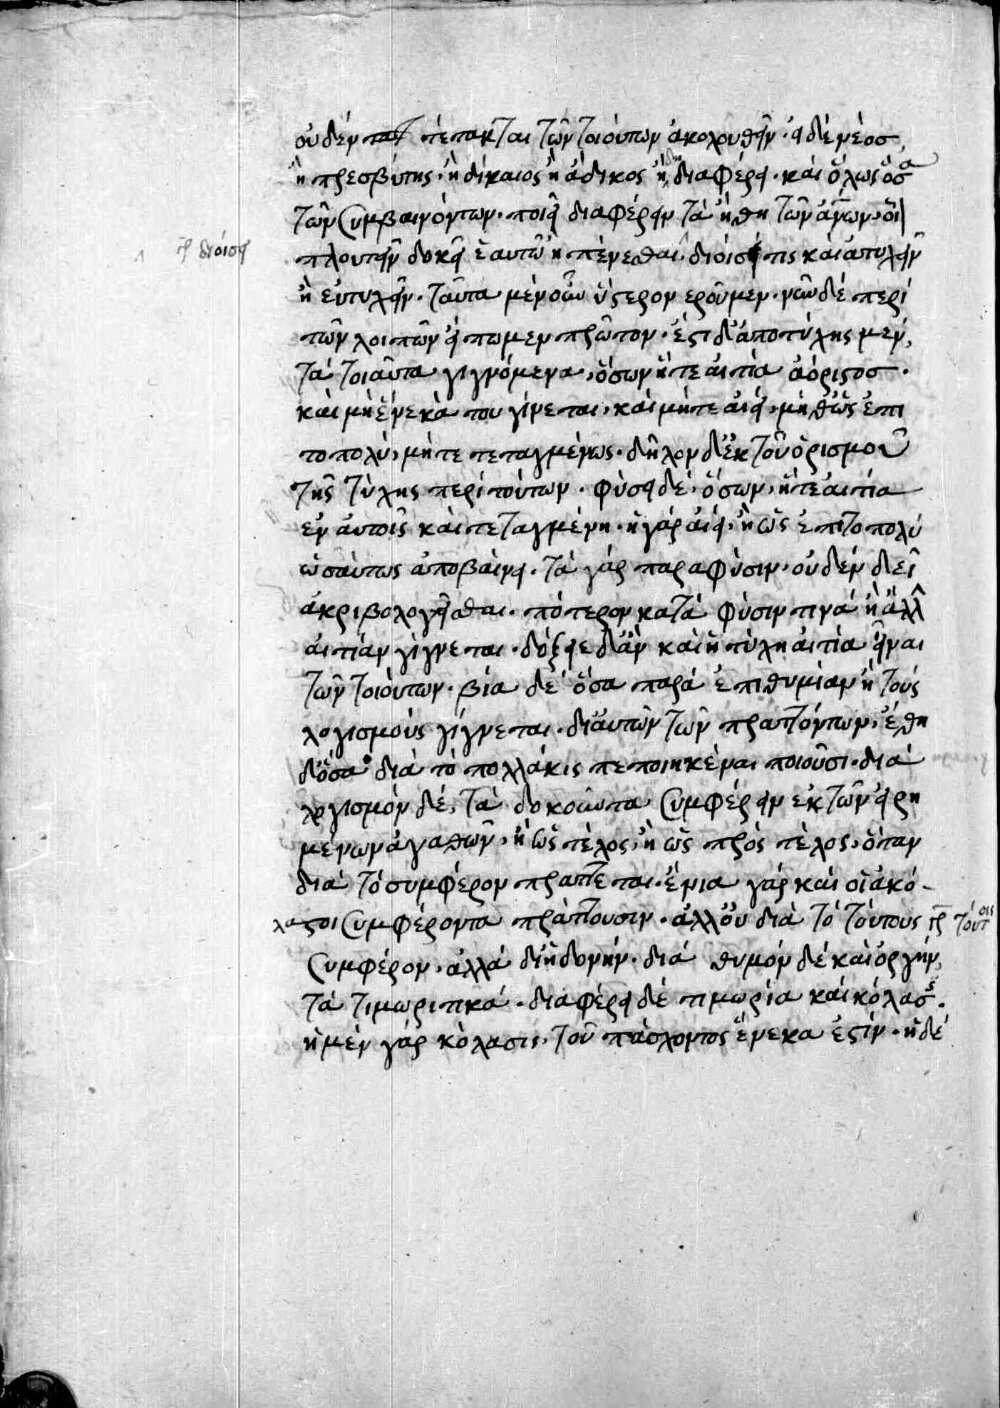 οὐδὲν τέτακται τῶν τοιούτων ἀκολουθεῖν· εἰ δὲ νέος,
ἢ πρεσβύτης· ἢ δίκαιος ἢ ἄδικος ἤδη διαφέρει· καὶ ὅλως ὅσα
τῶν συμβαινόντων· ποιεῖ διαφέρειν τὰ ἤθη τῶν ἀνων· οἷ
πλουτεῖν δοκεῖ ἑαυτῶ ἢ πένεσθαι· διοίσει τις καὶ ἀτυχεῖν
γρ διοίσει
ἢ εὐτυχεῖν· ταῦτα μὲν οὖν ὕστερον ἐροῦμεν· νῦν δὲ περὶ
τῶν λοιπῶν εἴπωμεν πρῶτον· ἔστι δ' ἀπο τύχης μεν,
τὰ τοιαῦτα γιγνόμενα, ὅσων ἥτε αἰτία ἀόριστος·
καὶ μὴ ἕνεκά του γίνεται, καὶ μήτε αἰεὶ, μήθ' ὡς ἐπι
τοπολύ, μήτε τεταγμένως· δῆλον δ' ἐκ τοῦ ὁρισμοῦ
τῆς τύχης περὶ τούτων· φύσει δὲ, ὅσων, ἥτε αἰτία
ἐν αὐτοῖς καὶ τεταγμένη· ἢ γὰρ αἰεὶ, ἢ ὡς ἐπιτοπολύ
ὡσαύτως ἀποβαίνει· τὰ γὰρ παραφύσιν· οὐδὲν δεῖ
ἀκριβολογεῖσθαι· πότερον κατὰ φύσιν τινὰ ἢ ἄλλ
αἰτίαν γίγνεται· δόξειε δ' ἂν καὶ ἡ τύχη αἰτία εἶναι
τῶν τοιούτων· βία δὲ ὅσα παρὰ ἐπιθυμίαν ἢ τοὺς
λογισμοὺς γίγνεται· δι' αὐτῶν τῶν πραττόντων· ἔθη
δ' ὅσα διὰ τὸ πολλάκις πεποιηκέναι ποιοῦσι· διὰ
λογισμὸν δὲ, τὰ δοκοῦντα συμφέρειν ἐκ τῶν εἰρη
μένων ἀγαθῶν, ἢ ὡς τέλος, ἢ ὡς πρὸς τέλος, ὅταν
διὰ τὸ συμφέρον πράττεται· ἔνια γὰρ καὶ οἱ ἀκό-
λαστοι συμφέροντα πράττουσιν· ἀλλ' οὐ διὰ τὸ τούτους γρ τούτοις
συμφέρον, ἀλλὰ δι' ἡδονήν· διὰ θυμὸν δὲ καὶ ὀργὴν,
τὰ τιμωριτικά· διαφέρει δὲ τιμωρία καὶ κόλασς·
ἡ μὲν γὰρ κόλασις, τοῦ πάσχοντος ἕνεκα ἐστίν· ἡ δὲ